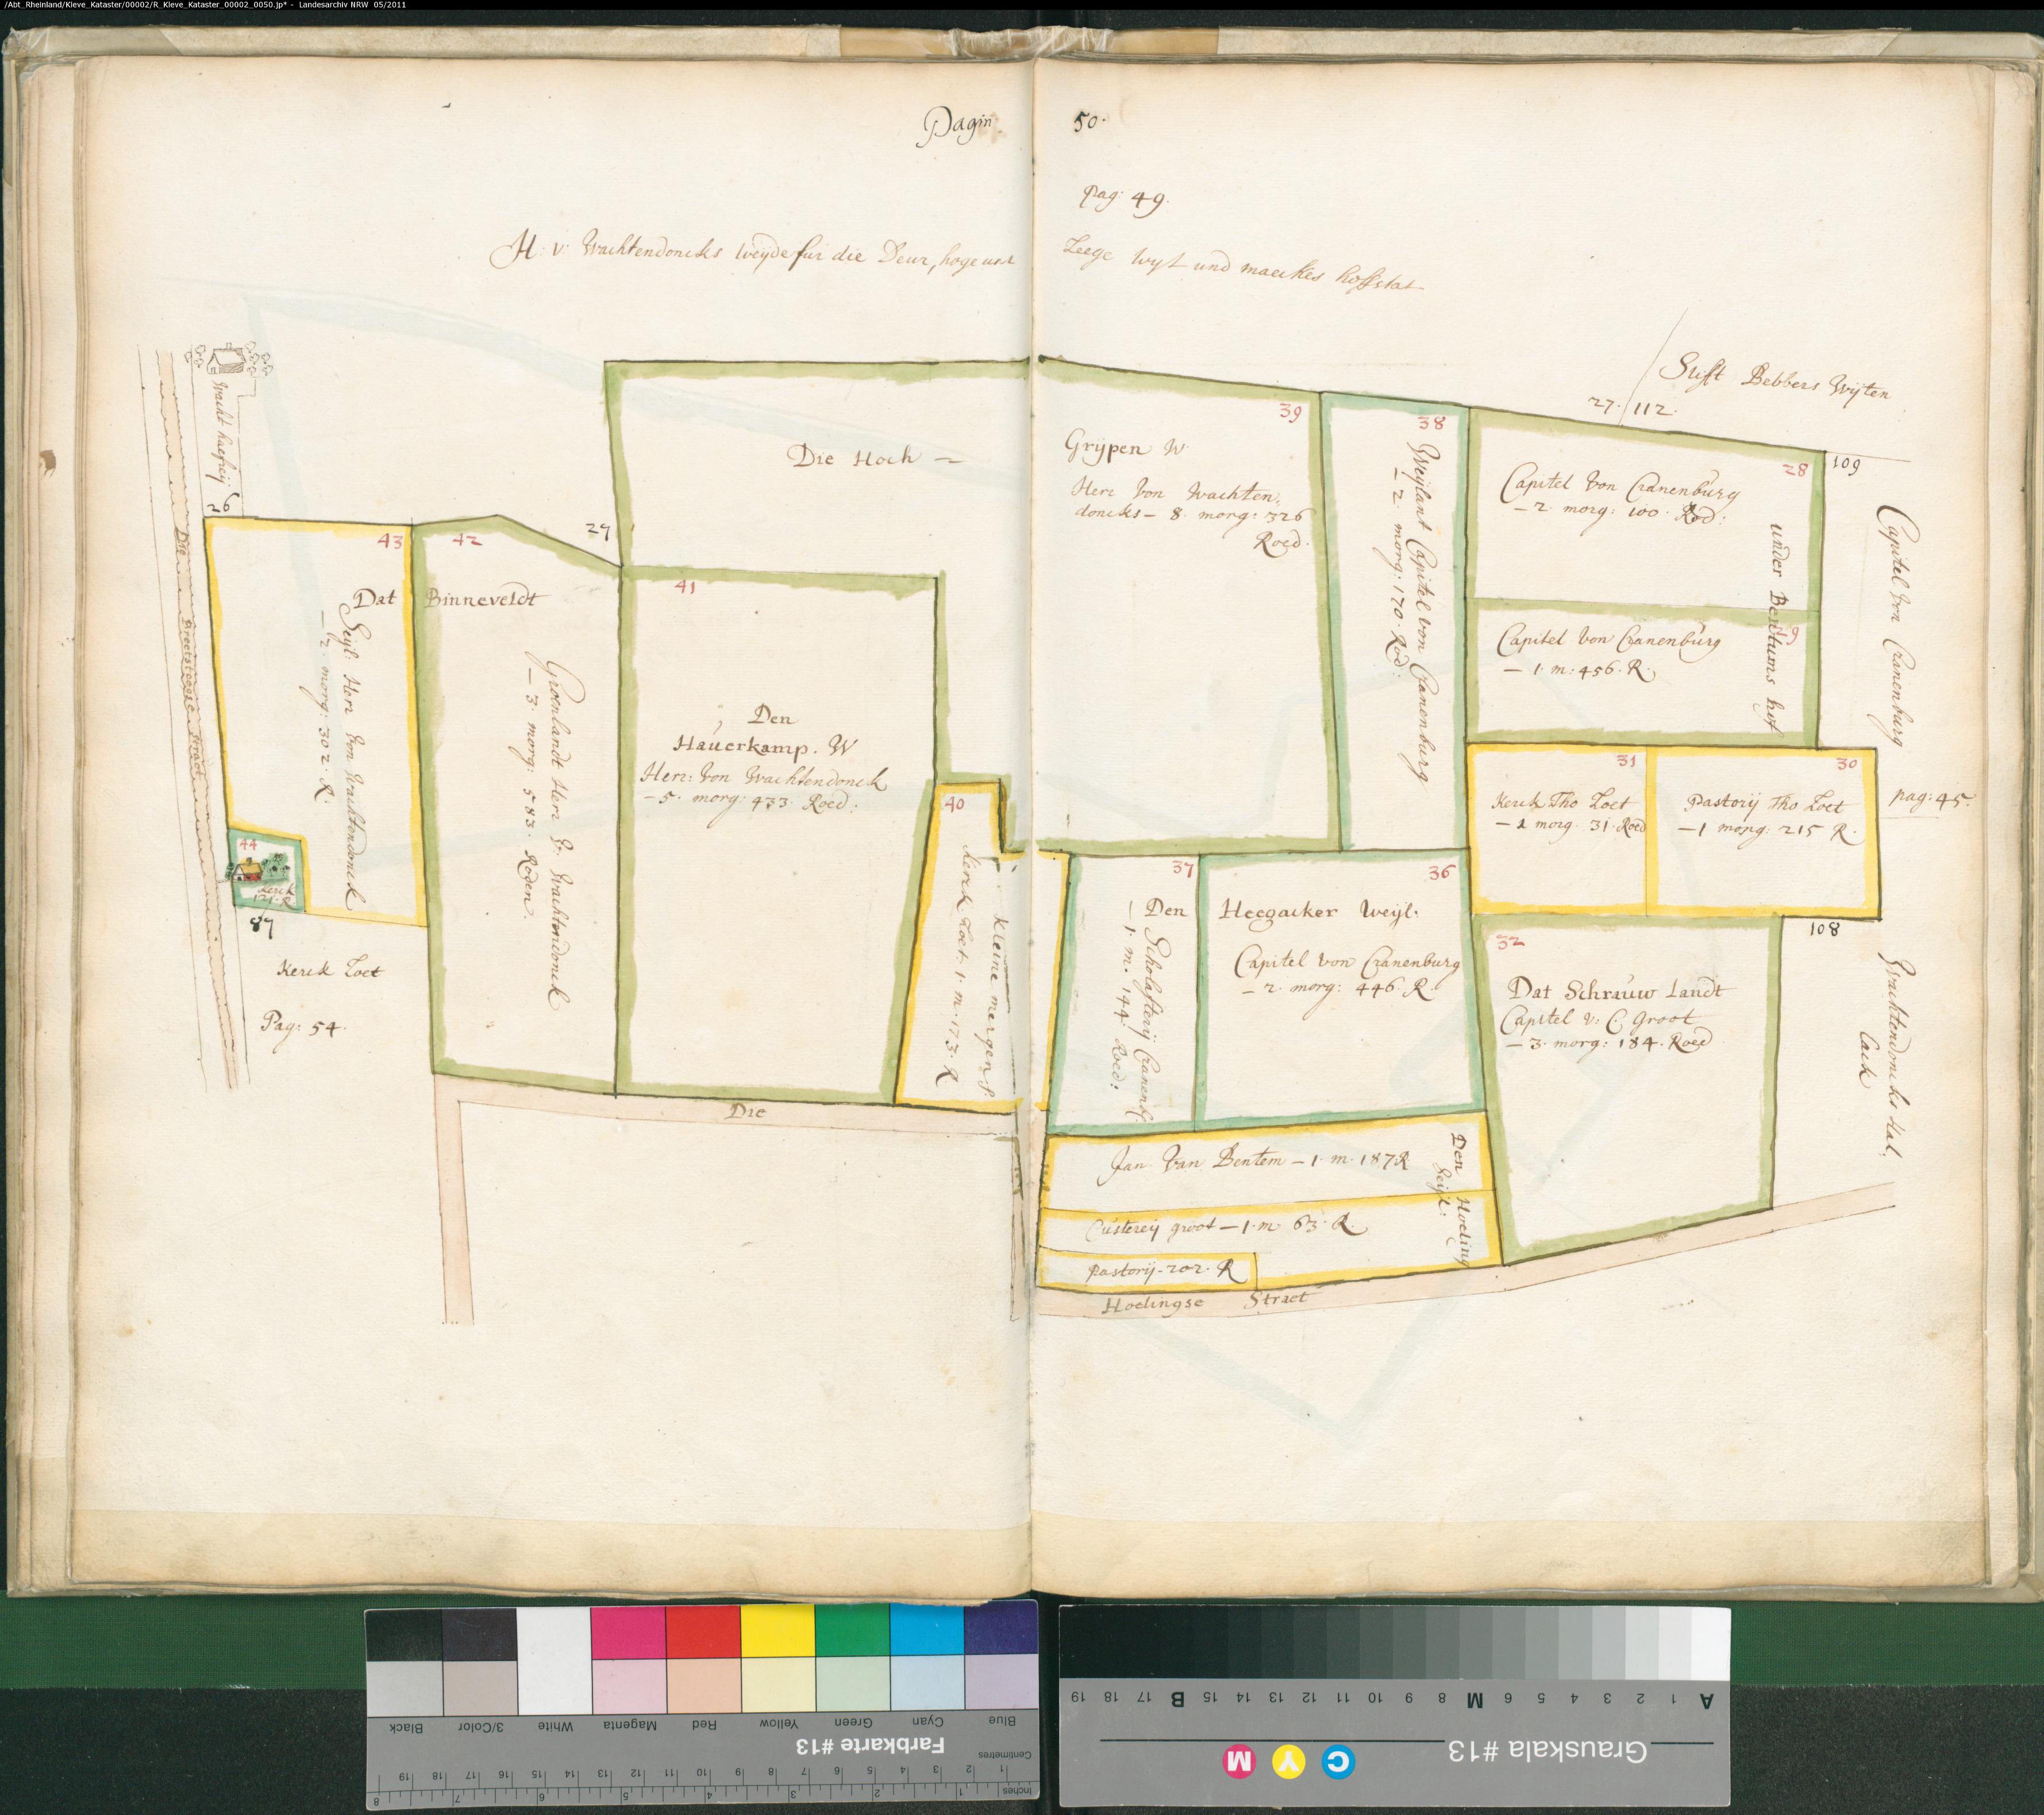 /Abt_Rheinland/Kleve_Kataster/00002/R_Kleve_Kataster_00002_0050.jp* - Landesarchiv NRW 05/2011
Pagin 50.
pag: 49.
H. v. Wachtendoncks weijde fur die Deur, hoge und
Leege wyt und maeckes hoffstat
Stift Bebbers Wyten
27. 112.
109
26
Die
Breetsteegse Straet
43
Dat Binneveldt
Geijl. Herr von Wachtendonck
— 2. morg: 302. R.
42
Groenlandt Herr v. Wachtendonck
— 3. morg: 583. Roden.
44
Kerck
121. R
87
Kerck Loet
Pag: 54.
Die Hoch —
27
41
Den
Hauerkamp. W
Herr: von Wachtendonck
— 5. morg: 433. Roed:
40
Kerck Loet. 1. m. 173. R
kleine mergen
39
Grijpen W.
Herr von Wachten,
doncks — 8. morg: 326
Roed.
38
Weijlant Capitel von Cranenburg
— 2. morg: 170. Rod:
28
Capitel von Cranenburg
— 2. morg: 100. Rod:
under Bentums hof
Capitel von Cranenburg
— 1. m: 456. R.
Capitel von Cranenburg
31
Kerck Tho Loet
— 1 morg. 31. Roed
30
Pastorij Tho Loet
— 1 morg: 215 R.
pag: 45.
108
37
— Den Scholasterij Cranenb.
— 1. m. 144. Roed:
36
Heegacker Weijl.
Capitel von Cranenburg
— 2. morg: 446. R.
32
Dat Schrauw Landt
Capitel v. C. groot
— 3. morg: 184. Roed
Wachtendoncks Hal,
Lack
Jan Van Bentem — 1. m. 187 R
Den Hoeling
Geijl:
Custereij groot — 1. m. 63. R.
Pastorij. 202. R
Die
Hoelingse Straet
Blue
Cyan
Green
Yellow
Red
Magenta
White
3/Color
Black
Farbkarte #13
Centimetres
1 2 3 4 5 6 7 8 9 10 11 12 13 14 15 16 17 18 19
Inches
1 2 3 4 5 6 7 8
A 1 2 3 4 5 6 M 8 9 10 11 12 13 14 15 B 17 18 19
Grauskala #13
C Y M